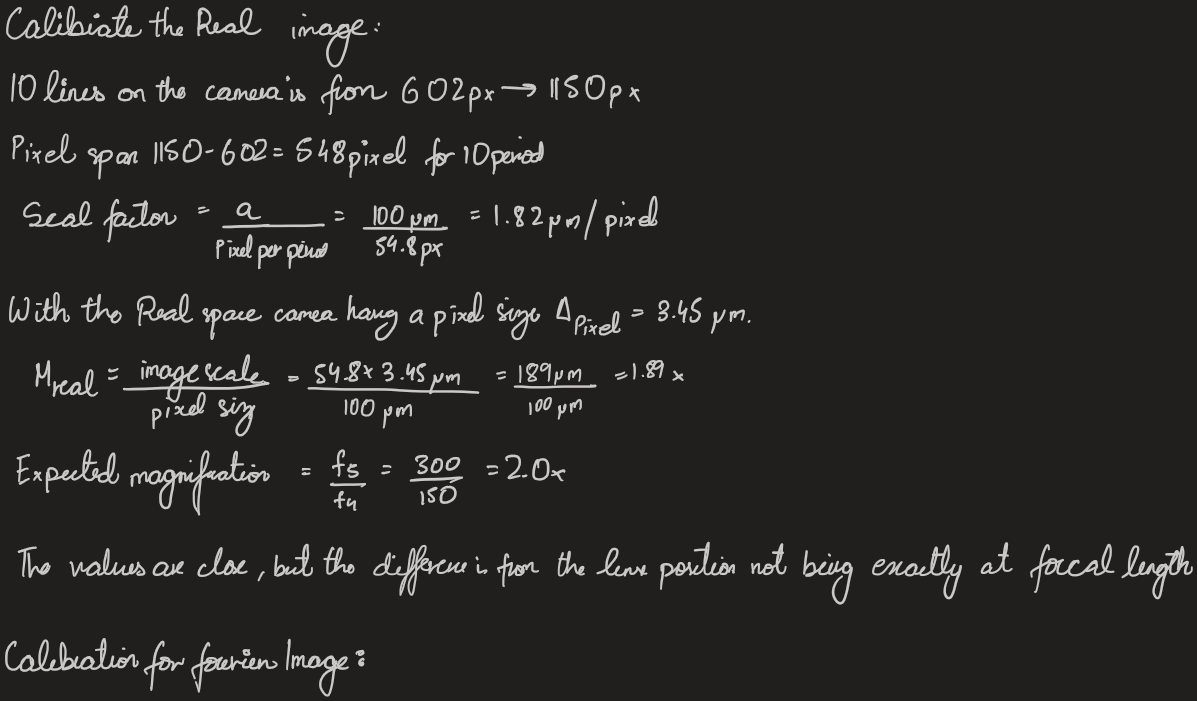 Calibiate the Real image:
10 lines on the camera is from 602px → 1150px
Pixel span 1150-602 = 548 pixel for 10 period
Seal factor = a / Pixel per period = 100 μm / 54.8 px = 1.82 μm / pixel
With the Real space camea havg a pixel size Δpixel = 3.45 μm.
Mreal = image scale / pixel siz = 54.8 × 3.45 μm / 100 μm = 189 μm / 100 μm = 1.89 x
Expected magnification = f5 / f4 = 300 / 150 = 2.0x
The values are close, but the difference is from the lens position not being exactly at foccal length
Calebration for fourier Image: